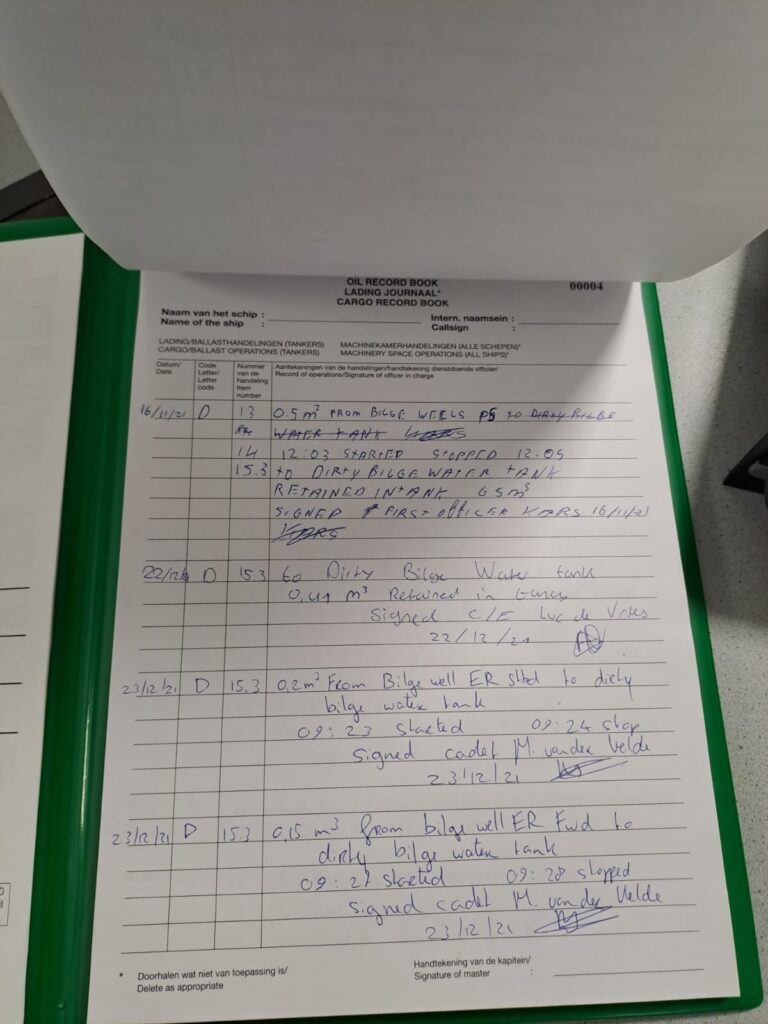 OIL RECORD BOOK 00004
LADING JOURNAAL*
CARGO RECORD BOOK
Naam van het schip : Intern. naamsein :
Name of the ship : Callsign :
LADING/BALLASTHANDELINGEN (TANKERS) MACHINEKAMERHANDELINGEN (ALLE SCHEPEN)*
CARGO/BALLAST OPERATIONS (TANKERS) MACHINERY SPACE OPERATIONS (ALL SHIPS)*
Datum/ Date
Code Letter/ Letter code
Nummer van de handeling Item number
Aantekeningen van de handelingen/handtekening dienstdoende officier/
Record of operations/Signature of officer in charge
16/11/21 D 13 0.5 m³ FROM BILGE WELLS PS to DIRTY BILGE
WATER TANK
14 12:03 STARTED STOPPED 12:05
15.3 to DIRTY BILGE WATER tANK
RETAINED IN tANK 65 m³
SIGNED FIRST OFFICER KARS 16/11/21
22/12/21 D 15.3 to Dirty Bilge Water tank
m³ Retained in
Signed C/E Luc de Vries
22/12/21
23/12/21 D 15.3 0,2 m³ From Bilge well ER stbd to dirty
bilge water tank
09:23 started 09:24 stop
signed cadet M. van der Velde
23/12/21
23/12/21 D 15.3 0,15 m³ from bilge well ER Fwd to
dirty bilge water tank
09:27 started 09:28 stopped
signed cadet M. van der Velde
23/12/21
* Doorhalen wat niet van toepassing is/
Delete as appropriate
Handtekening van de kapitein/
Signature of master :